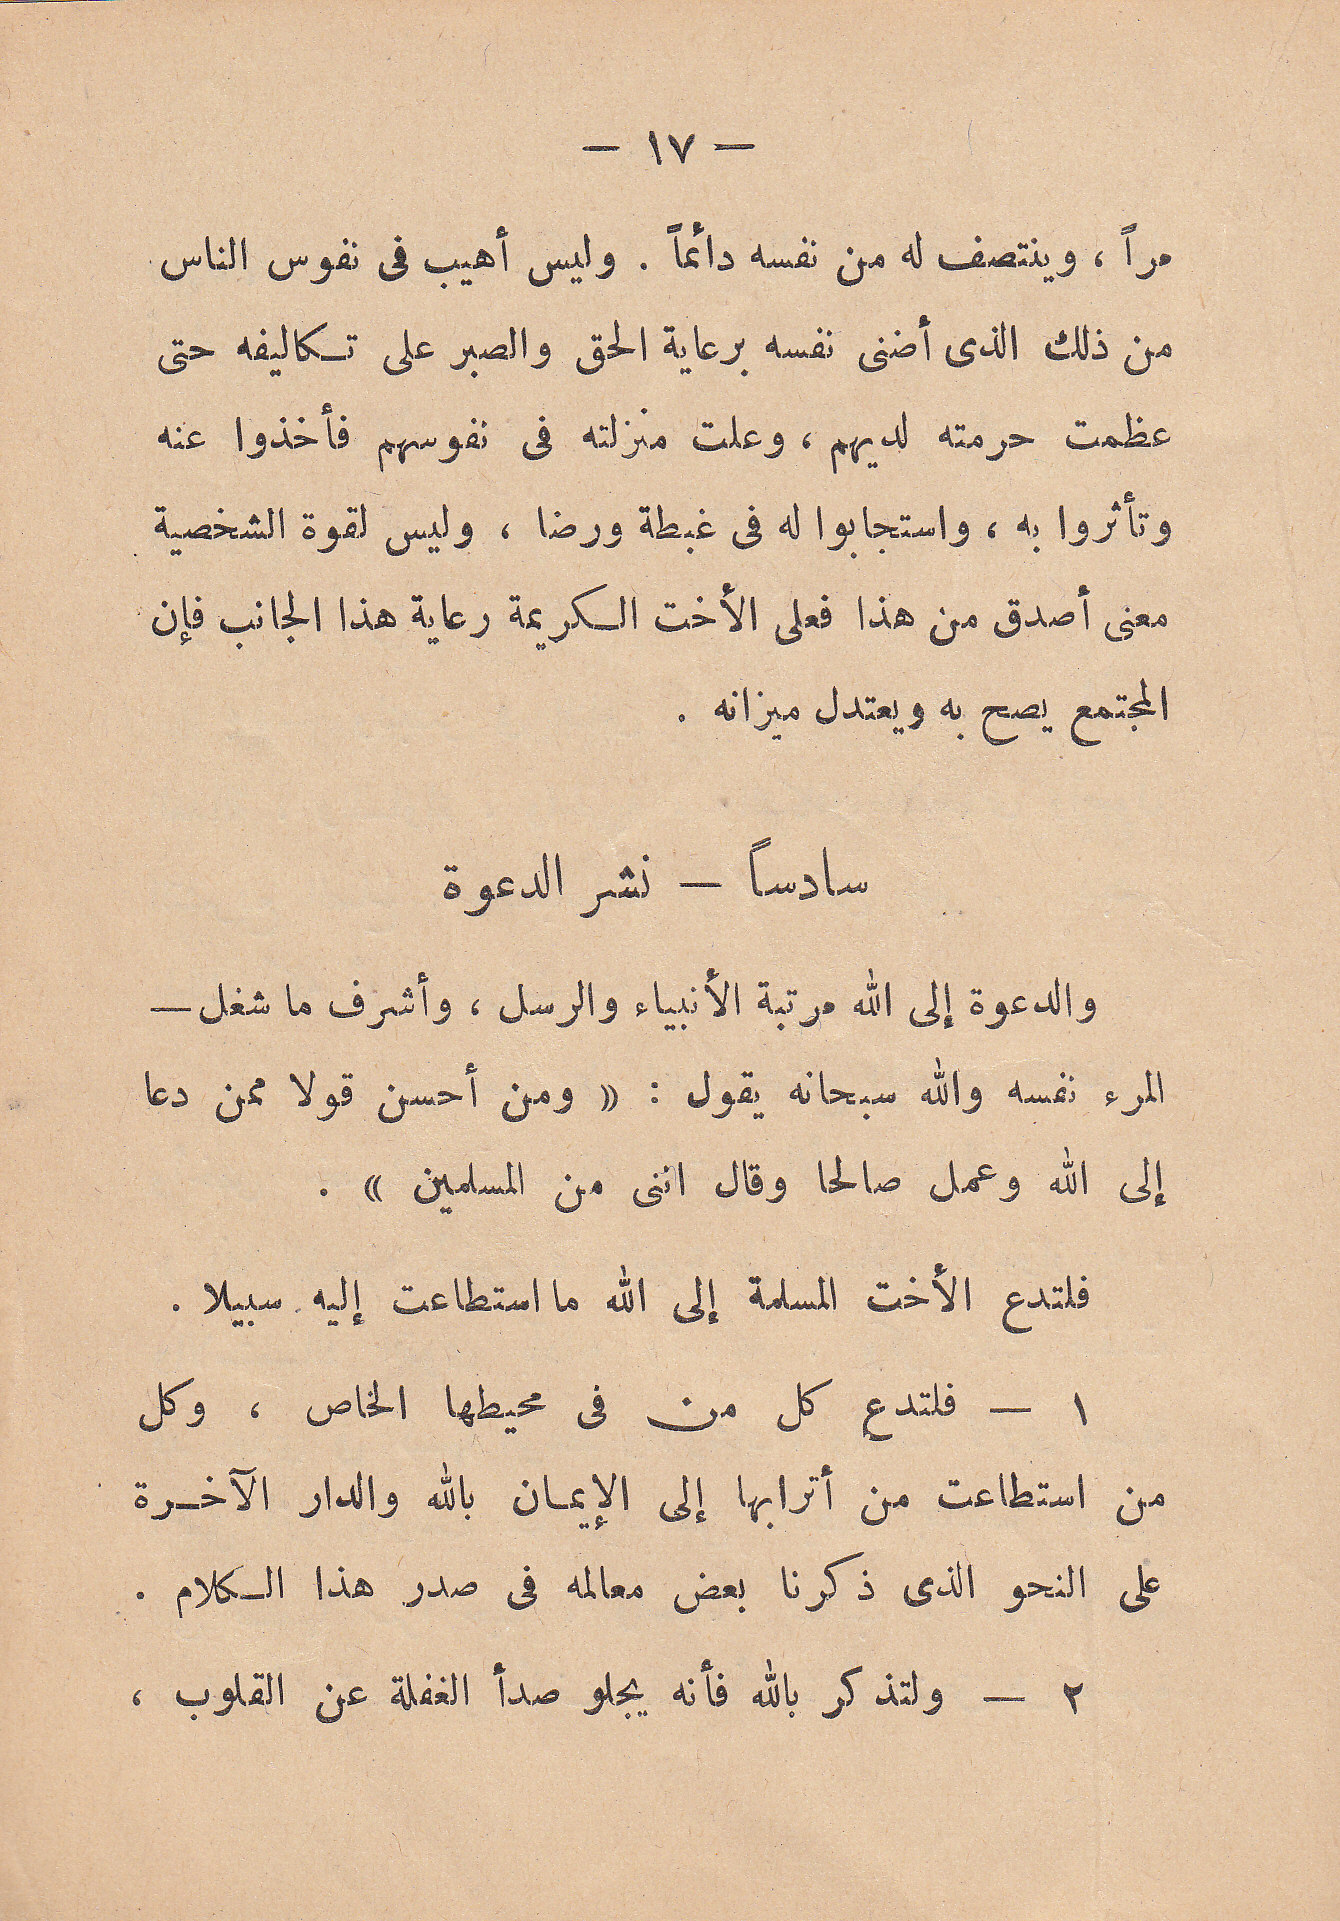 — ١٧ —
مراً ، وينتصف له من نفسه دائماً . وليس أهيب فى نفوس الناس
من ذلك الذى أضنى نفسه برعاية الحق والصبر على تكاليفه حتى
عظمت حرمته لديهم ، وعلت منزلته فى نفوسهم فأخذوا عنه
وتأثروا به ، واستجابوا له فى غبطة ورضا ، وليس لقوة الشخصية
معنى أصدق من هذا فعلى الأخت الكريمة رعاية هذا الجانب فإن
المجتمع يصح به ويعتدل ميزانه .
سادساً — نشر الدعوة
والدعوة إلى الله مرتبة الأنبياء والرسل ، وأشرف ما شغل —
المرء نفسه والله سبحانه يقول : « ومن أحسن قولا ممن دعا
إلى الله وعمل صالحا وقال اننى من المسلمين » .
فلتدع الأخت المسلمة إلى الله ما استطاعت إليه سبيلا .
١ — فلتدع كل من فى محيطها الخاص ، وكل
من استطاعت من أترابها إلى الإيمان بالله والدار الآخرة
على النحو الذى ذكرنا بعض معالمه فى صدر هذا الكلام .
٢ — ولتذكر بالله فأنه يجلو صدأ الغفلة عن القلوب ،